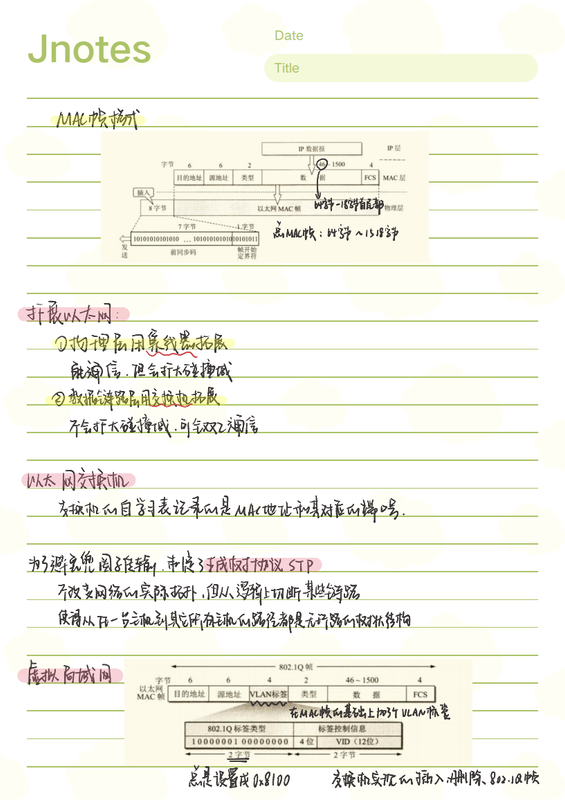 Jnotes
Date
Title
MAC帧格式
IP 数据报
IP 层
字节 6 6 2 46~1500 4
目的地址 源地址 类型 数 据 FCS MAC 层
插入
8 字节 以太网 MAC 帧 物理层
总MAC帧:64字节~1518字节
7 字节 1 字节
10101010101010 … 10101010101010101011
发送 前同步码 帧开始定界符
扩展以太网:
①物理层用集线器拓展
能通信,但会扩大碰撞域
②数据链路层用交换机拓展
不会扩大碰撞域,可全双工通信
以太网交换机
交换机的自学习表记录的是MAC地址和其对应的端口号.
为了避免兜圈子传输,制定了生成树协议 STP
不改变网络的实际拓扑,但从逻辑上切断某些链路
使得从任一台主机到其它所有主机的路径都是无环路的树状结构
虚拟局域网
802.1Q 帧
字节 6 6 4 2 46~1500 4
以太网 MAC 帧 目的地址 源地址 VLAN标签 类型 数 据 FCS
在MAC帧的基础上加了个VLAN标签
802.1Q 标签类型 标签控制信息
10000001 00000000 4 位 VID(12位)
2 字节 2 字节
总是设置成0x8100 交换机实现的插入和删除802.1Q帧